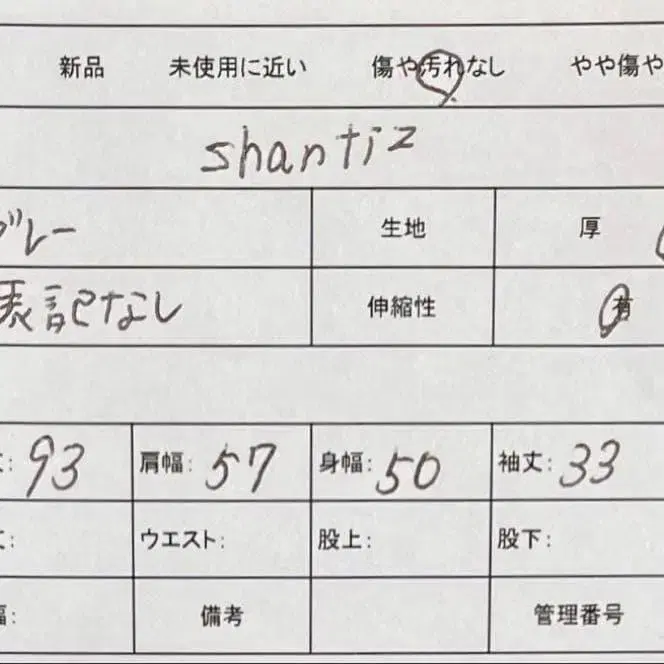 新品 未使用に近い 傷や汚れなし やや傷や
shantiz
グレー 生地 厚
表記なし 伸縮性 有
丈: 93 肩幅: 57 身幅: 50 袖丈: 33
丈: ウエスト: 股上: 股下:
幅: 備考 管理番号